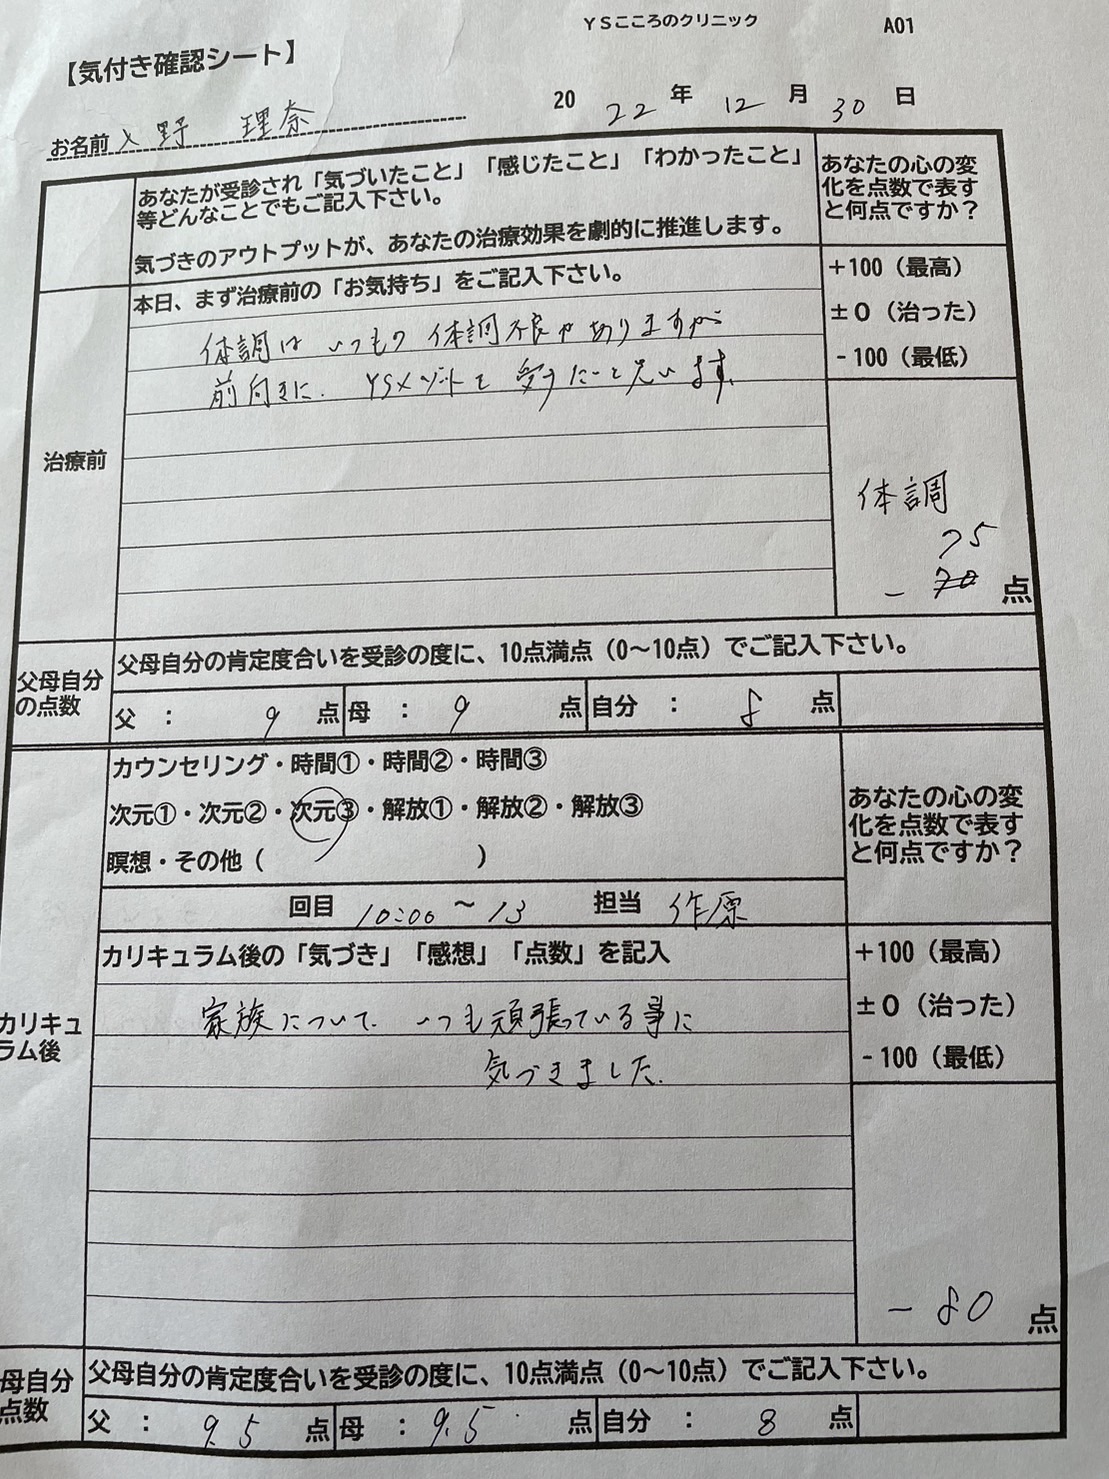 YSこころのクリニック
A01
【気付き確認シート】
20 22 年 12 月 30 日
お名前 野 理奈
あなたが受診され「気づいたこと」「感じたこと」「わかったこと」
等どんなことでもご記入下さい。
気づきのアウトプットが、あなたの治療効果を劇的に推進します。
あなたの心の変
化を点数で表す
と何点ですか？
本日、まず治療前の「お気持ち」をご記入下さい。
+100（最高）
±0（治った）
-100（最低）
治療前
体調は いつもの 体調不良がありますが
前向きに. YSメソットを 受けたいと思います.
体調
75
- 70 点
父母自分
の点数
父母自分の肯定度合いを受診の度に、10点満点（0～10点）でご記入下さい。
父 ： 9 点 母 ： 9 点 自分 ： 8 点
カウンセリング・時間①・時間②・時間③
次元①・次元②・次元③・解放①・解放②・解放③
瞑想・その他（ ）
あなたの心の変
化を点数で表す
と何点ですか？
回目 10:00 ～ 13 担当 作原
カリキュラム後の「気づき」「感想」「点数」を記入
+100（最高）
±0（治った）
-100（最低）
カリキュ
ラム後
家族について. いつも頑張っている事に
気づきました.
- 80 点
母自分
点数
父母自分の肯定度合いを受診の度に、10点満点（0～10点）でご記入下さい。
父 ： 9.5 点 母 ： 9.5 点 自分 ： 8 点